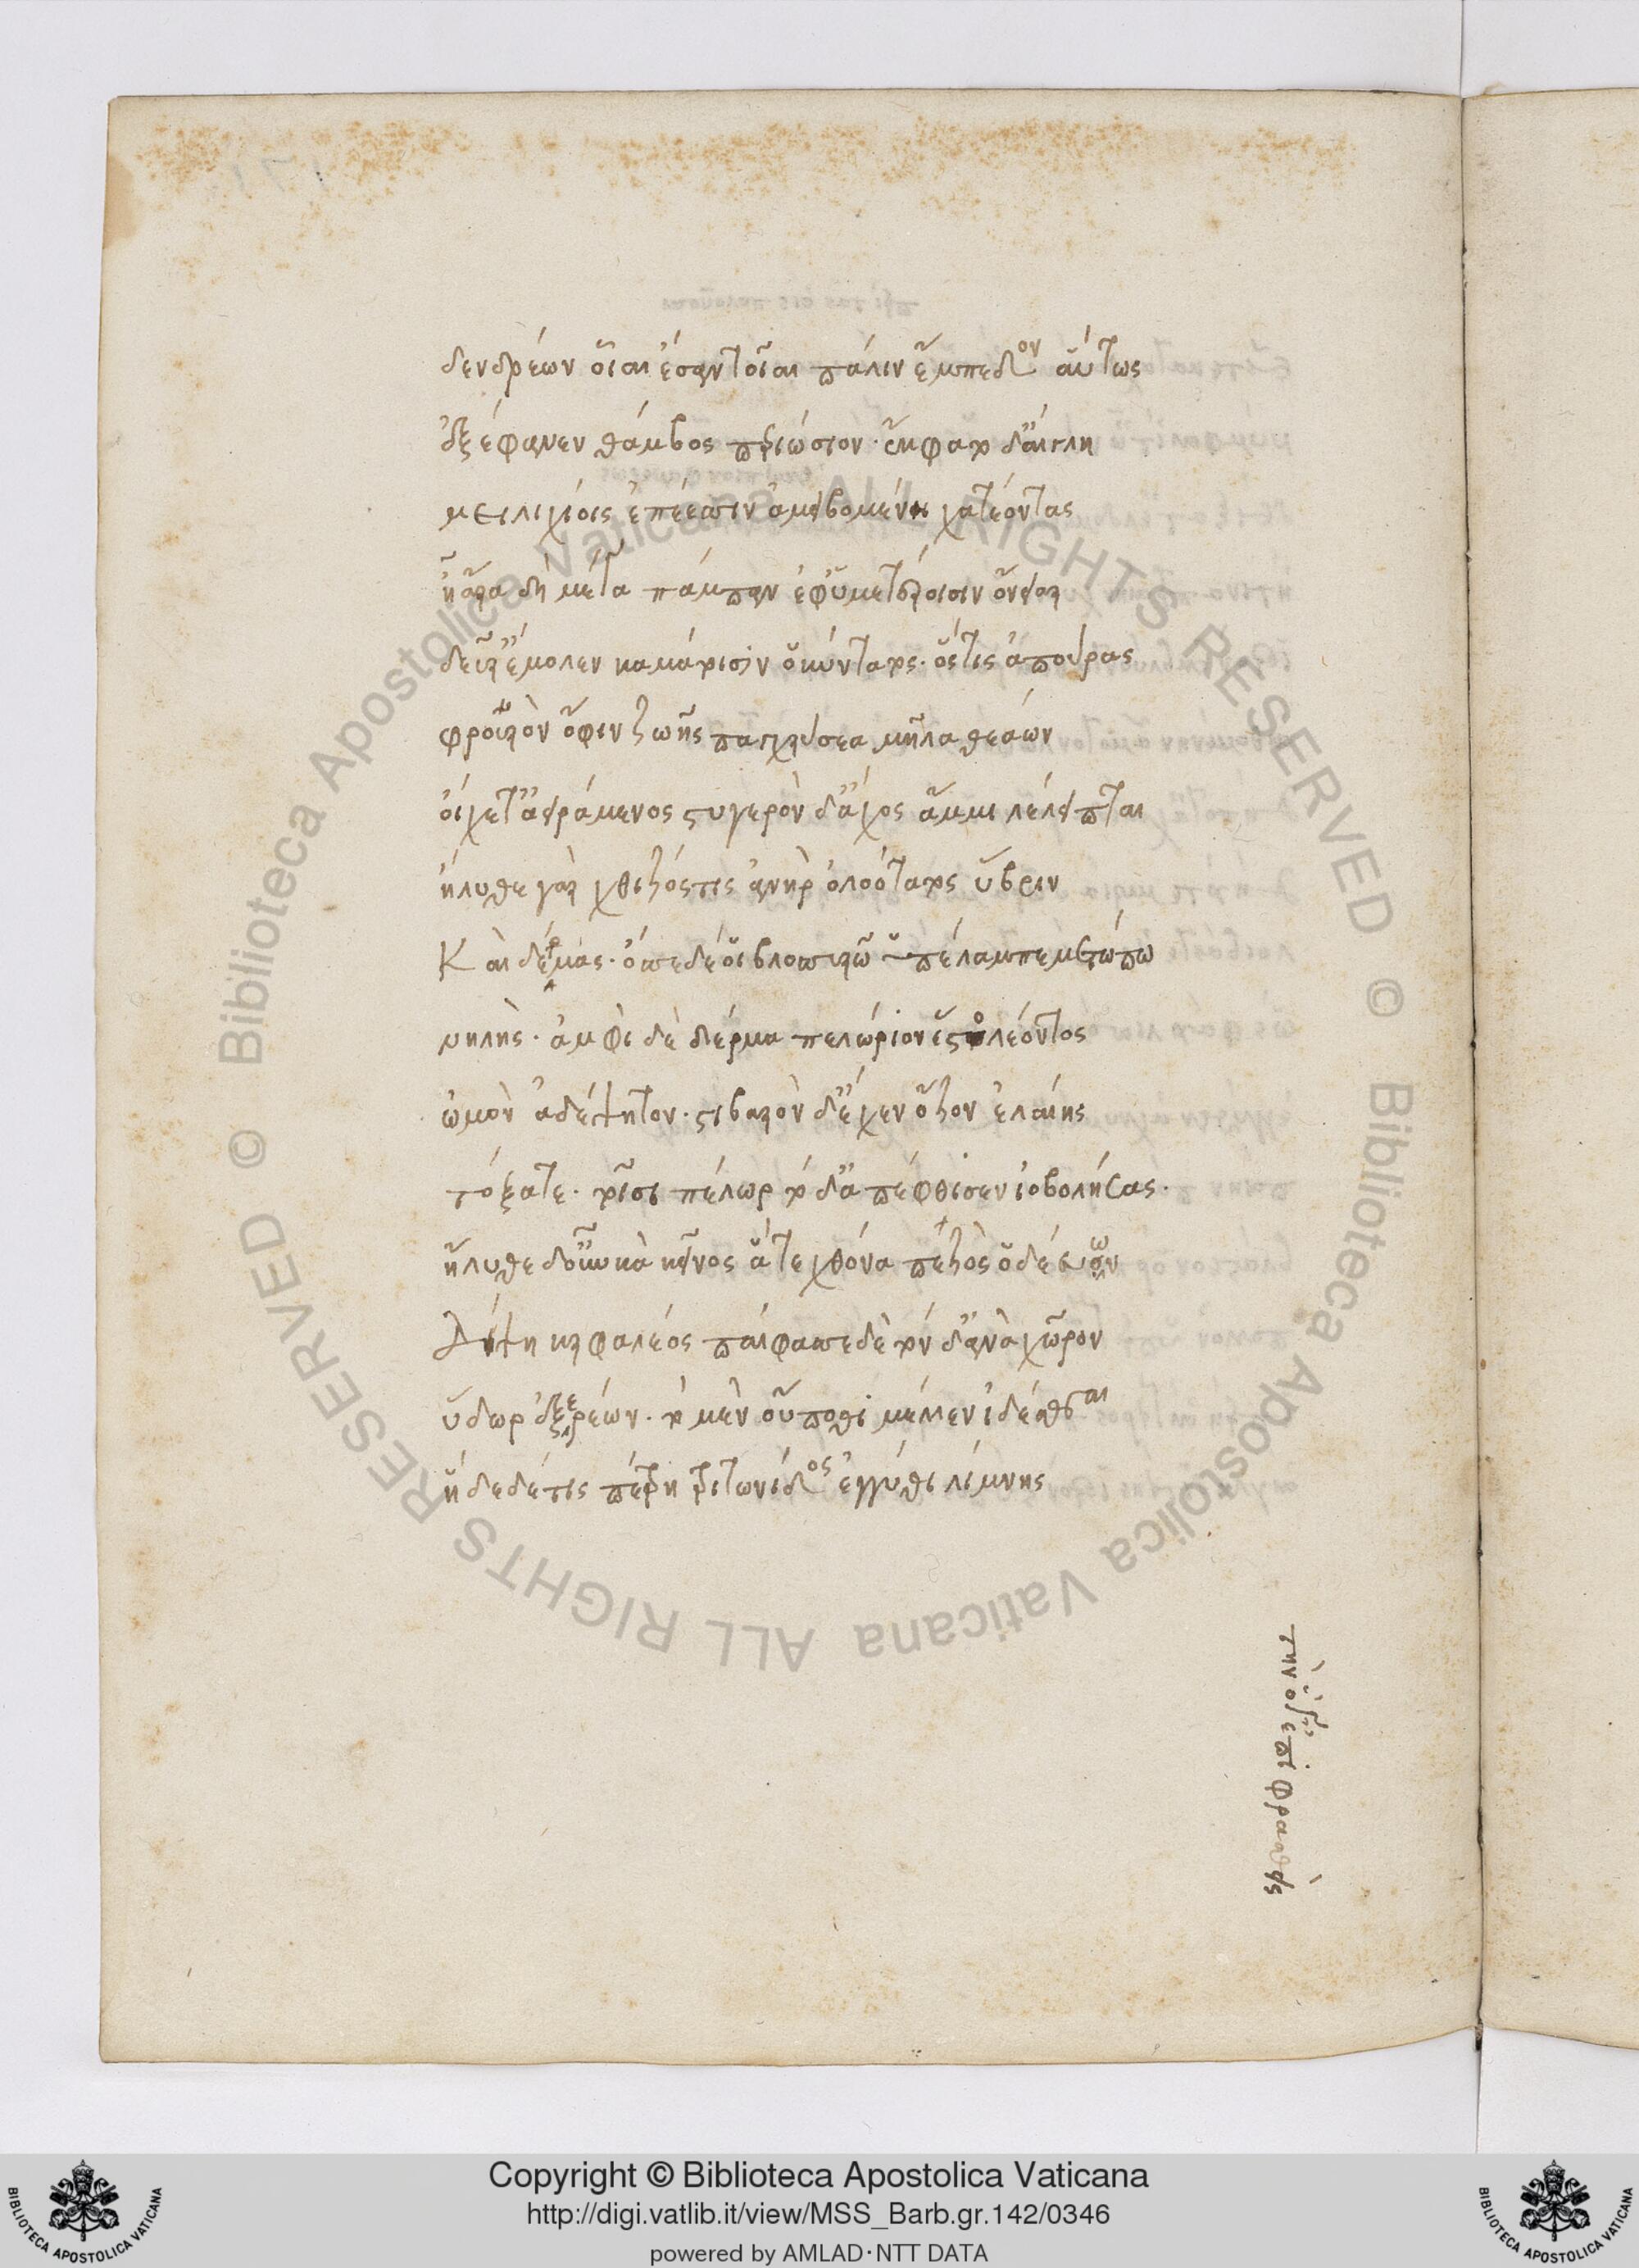 δενδρέων οἷαι ἔσαν τοῖαι πάλιν ἔμπεδον αὔτως
ἐξέφανεν θάμβος περιώσιον· ἔκφατο δ' αἴγλη
μειλιχίοις ἐπέεσσιν ἀμειβομένη χατέοντας
ἦ ἄρα δὴ μέγα πάμπαν ἐφ' ὑμετέροισιν ὄνειαρ
δεῦρ' ἔμολεν καμάτοισιν ὁ κύντατος· ὅστις ἀπούρας
φρουρὸν ὄφιν ζωῆς παγχρύσεα μῆλα θεάων
οἴχετ' ἀειράμενος στυγερὸν δ' ἄχος ἄμμι λέλειπται
ἤλυθε γὰρ χθιζός τις ἀνὴρ ὀλοώτατος ὕβριν
Καὶ δέμας· ὄσσε δέ οἱ βλοσυρῷ ὑπέλαμπε μετώπῳ
νηλής· ἀμφὶ δὲ δέρμα πελώριον ἕστο λέοντος
ὠμὸν ἀδέψητον· στιβαρὸν δ' ἔχεν ὄζον ἐλαίης
τόξα τε· τοῖσι πέλωρ τόδ' ἀπέφθισεν ἰοβολήσας·
ἤλυθε δ' οὖν κἀκεῖνος ἅτε χθόνα πεζὸς ὁδεύων
Δίψη καρφαλέος παίφασσε δὲ τόνδ' ἀνὰ χῶρον
ὕδωρ ἐξερέων· τὸ μὲν οὔποθι μέλλεν ἰδέσθαι
ἥδε δέ τις πέτρη Τριτωνίδος ἐγγύθι λίμνης
τὴν ὅγ' ἐπιφρασθεὶς
Copyright © Biblioteca Apostolica Vaticana
http://digi.vatlib.it/view/MSS_Barb.gr.142/0346
powered by AMLAD·NTT DATA
BIBLIOTECA APOSTOLICA VATICANA
BIBLIOTECA APOSTOLICA VATICANA
© Biblioteca Apostolica Vaticana ALL RIGHTS RESERVED
© Biblioteca Apostolica Vaticana ALL RIGHTS RESERVED